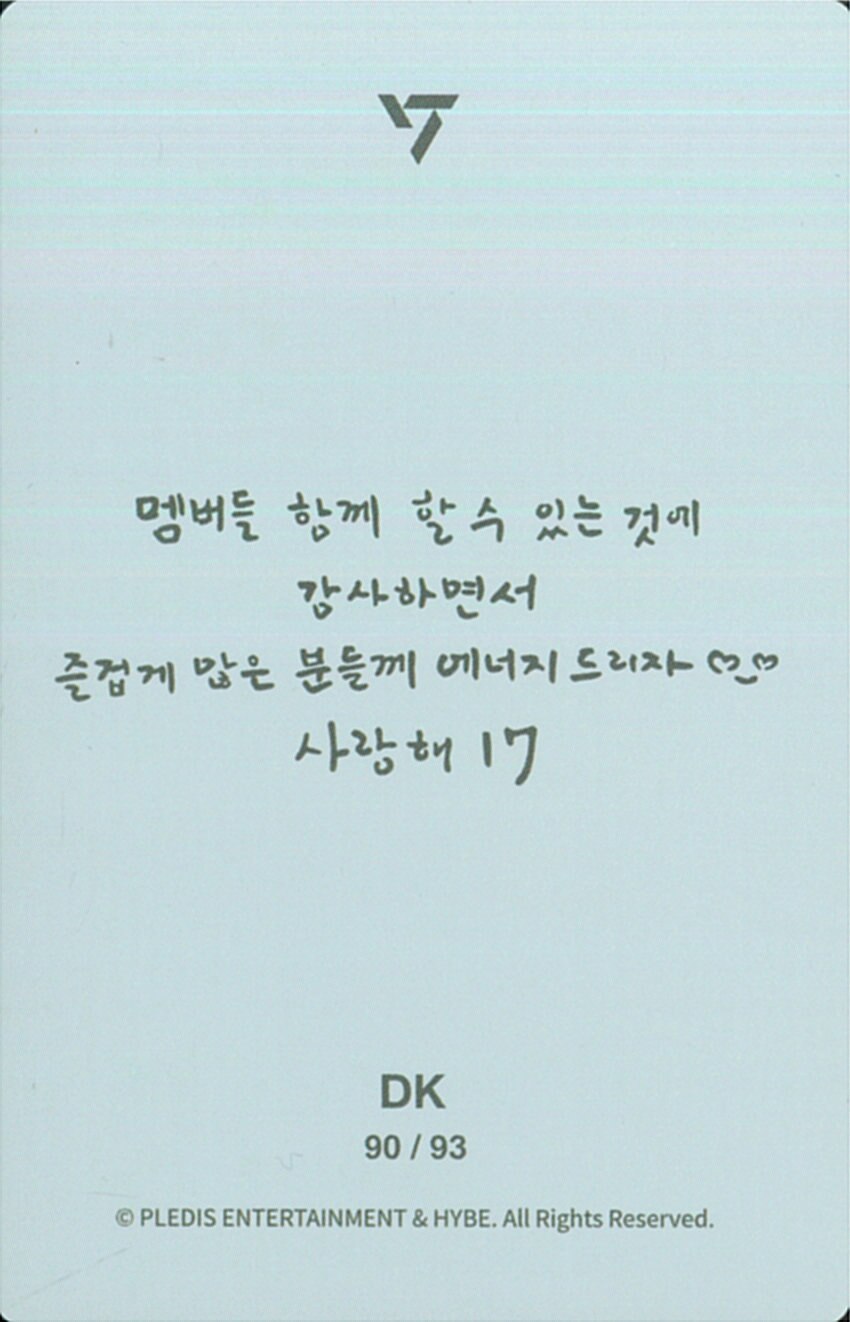 멤버들 함께 할 수 있는 것에
감사하면서
즐겁게 많은 분들께 에너지 드리자 ♡_♡
사랑해 17
DK
90 / 93
© PLEDIS ENTERTAINMENT & HYBE. All Rights Reserved.